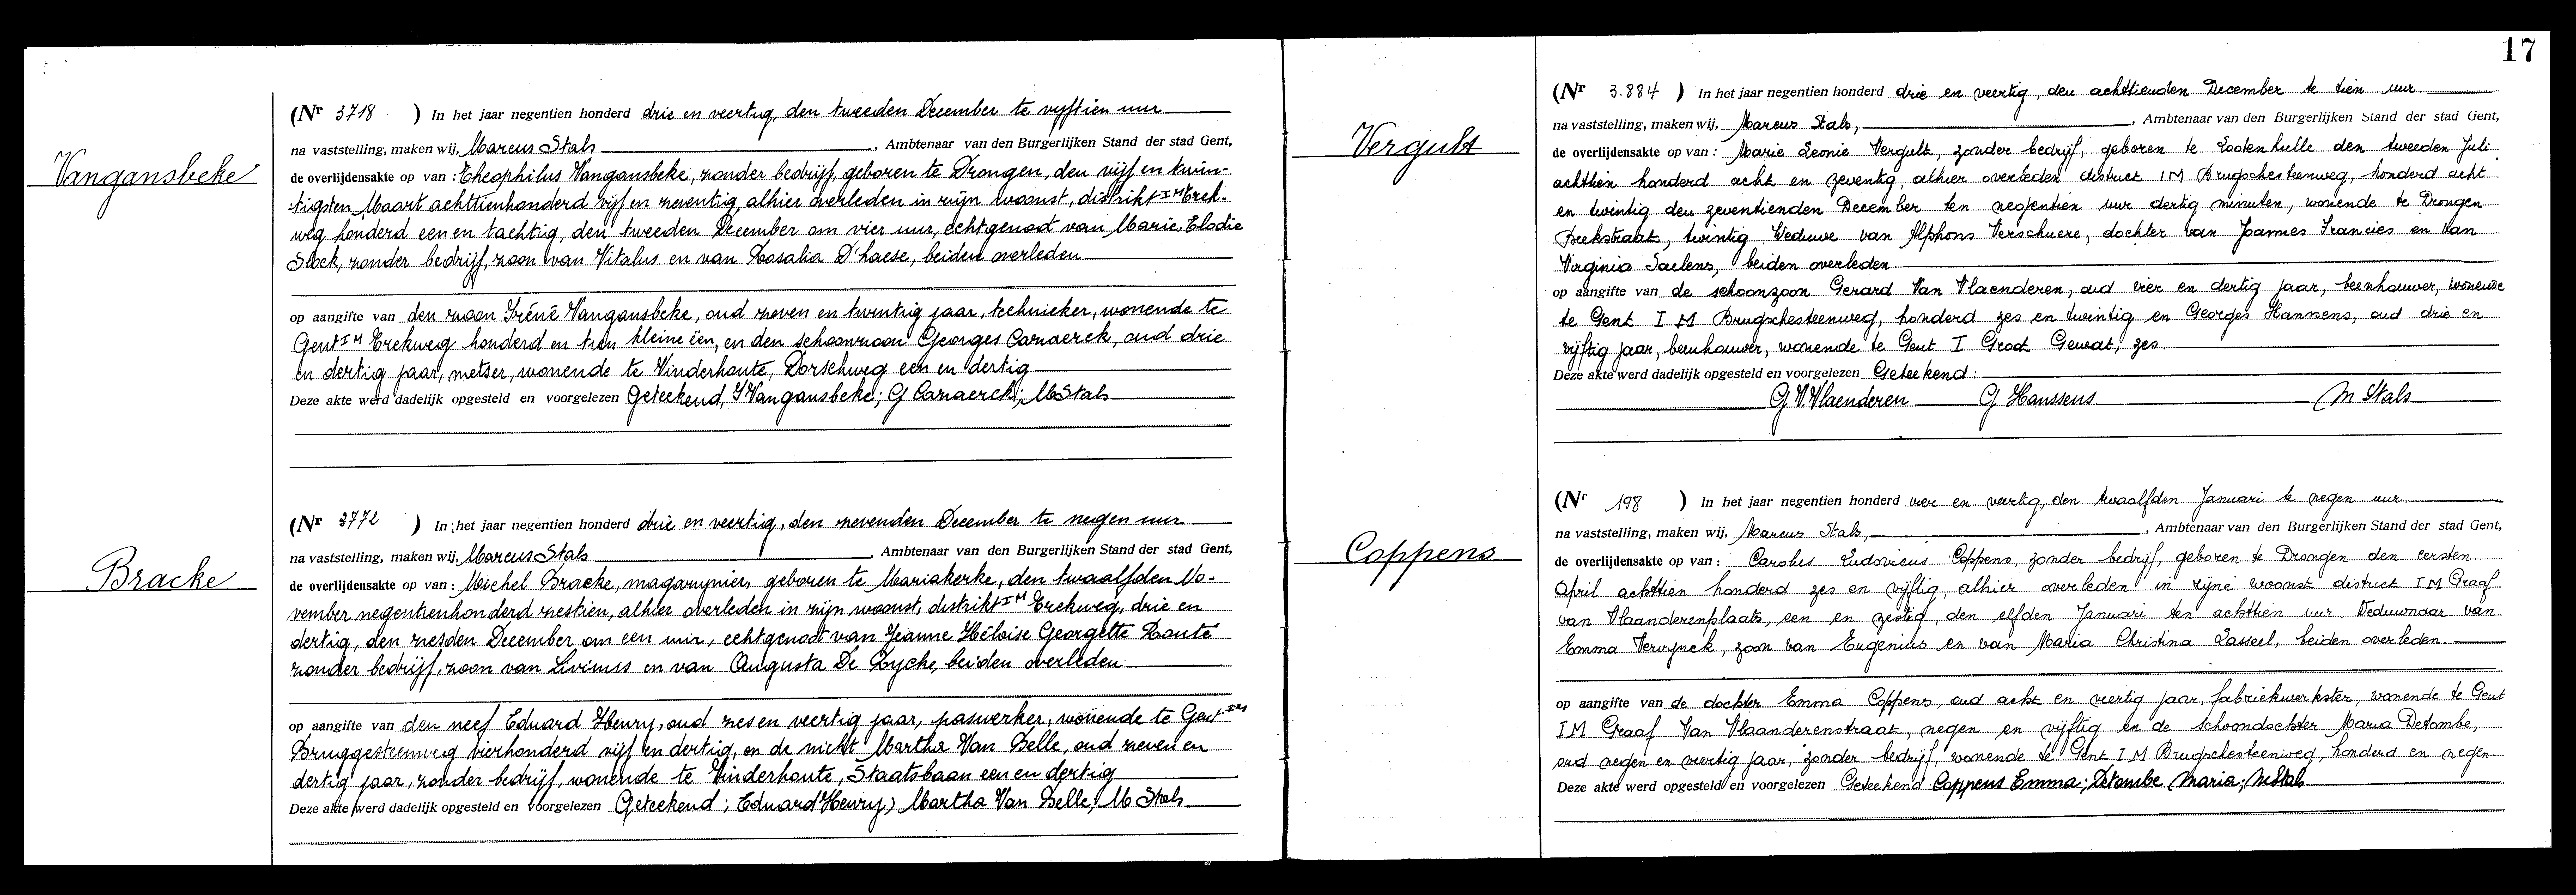 Vangansbeke
(Nr 3718 ) In het jaar negentien honderd drie en veertig, den tweeden December te vyftien uur
na vaststelling, maken wij, Marcus Stals, Ambtenaar van den Burgerlijken Stand der stad Gent,
de overlijdensakte op van : Theophilus Vangansbeke, zonder bedrijf, geboren te Drongen, den vijf en twin-
tigsten Maart achttienhonderd vijf en zeventig, alhier overleden in zijn woonst, distrikt I M Erek-
weg honderd een en tachtig, den tweeden December om vier uur, echtgenoot van Marie, Elodie
Stock, zonder bedrijf, zoon van Vitalus en van Rosalia D'haese, beiden overleden
op aangifte van den zoon Iréné Vangansbeke, oud zeven en twintig jaar, technieker, wonende te
Gent I M Erekweg honderd en tien kleine een, en den schoonzoon Georges Carnaerck, oud drie
en dertig jaar, metser, wonende te Vinderhoute, Dorschweg een en dertig
Deze akte werd dadelijk opgesteld en voorgelezen Geteekend, I Vangansbeke; G Carnaerck; M Stals
Bracke
(Nr 3772 ) In het jaar negentien honderd drie en veertig, den zevenden December te negen uur
na vaststelling, maken wij, Marcus Stals, Ambtenaar van den Burgerlijken Stand der stad Gent,
de overlijdensakte op van : Michel Bracke, magazynier, geboren te Mariakerke, den twaalfden No-
vember negentienhonderd zestien, alhier overleden in zijn woonst, distrikt I M Erekweg, drie en
dertig, den zesden December om een uur, echtgenoot van Jeanne Héloise Georgette Route
zonder bedrijf, zoon van Livinus en van Augusta De Rycke, beiden overleden
op aangifte van den neef Eduard Henry, oud zes en veertig jaar, paswerker, wonende te Gent I M
Bruggesteenweg vierhonderd vijf en dertig, en de nicht Martha Van Belle, oud zeven en
dertig jaar, zonder bedrijf, wonende te Vinderhoute, Staatsbaan een en dertig
Deze akte werd dadelijk opgesteld en voorgelezen Geteekend; Eduard Henry, Martha Van Belle, M Stals
17
Vergult
(Nr 3.884 ) In het jaar negentien honderd drie en veertig, den achttienden December te tien uur
na vaststelling, maken wij, Marcus Stals, Ambtenaar van den Burgerlijken Stand der stad Gent,
de overlijdensakte op van : Marie Leonie Vergult, zonder bedrijf, geboren te Lootenhulle den tweeden Juli
achttien honderd acht en zeventig, alhier overleden district I M Brugschesteenweg, honderd acht
en twintig den zeventienden December ten negentien uur dertig minuten, wonende te Drongen
Beekstraat, twintig Weduwe van Alphons Verschuere, dochter van Joannes Francies en van
Virginia Saelens, beiden overleden
op aangifte van de schoonzoon Gerard Van Vlaenderen, oud vier en dertig jaar, beenhouwer, wonende
te Gent I M Brugschesteenweg, honderd zes en twintig en Georges Hanssens, oud drie en
vijftig jaar, beenhouwer, wonende te Gent I Groot Gewat, zes
Deze akte werd dadelijk opgesteld en voorgelezen Geteekend :
G V Vlaenderen G Hanssens M Stals
Coppens
(Nr 198 ) In het jaar negentien honderd vier en veertig, den twaalfden Januari te negen uur
na vaststelling, maken wij, Marcus Stals, Ambtenaar van den Burgerlijken Stand der stad Gent,
de overlijdensakte op van : Carolus Ludovicus Coppens, zonder bedrijf, geboren te Drongen den eersten
April achttien honderd zes en vijftig, alhier overleden in zijne woonst district I M Graaf
van Vlaanderenplaats, een en zestig, den elfden Januari ten achttien uur Weduwnaar van
Emma Verwynck, zoon van Eugenius en van Maria Christina Lasseel, beiden overleden
op aangifte van de dochter Emma Coppens, oud acht en veertig jaar, fabriekwerkster, wonende te Gent
I M Graaf Van Vlaanderenstraat, negen en vijftig en de schoondochter Maria Detombe,
oud negen en veertig jaar, zonder bedrijf, wonende te Gent I M Brugschesteenweg, honderd en negen
Deze akte werd dadelijk opgesteld en voorgelezen Geteekend Coppens Emma; Detombe Maria; M Stals